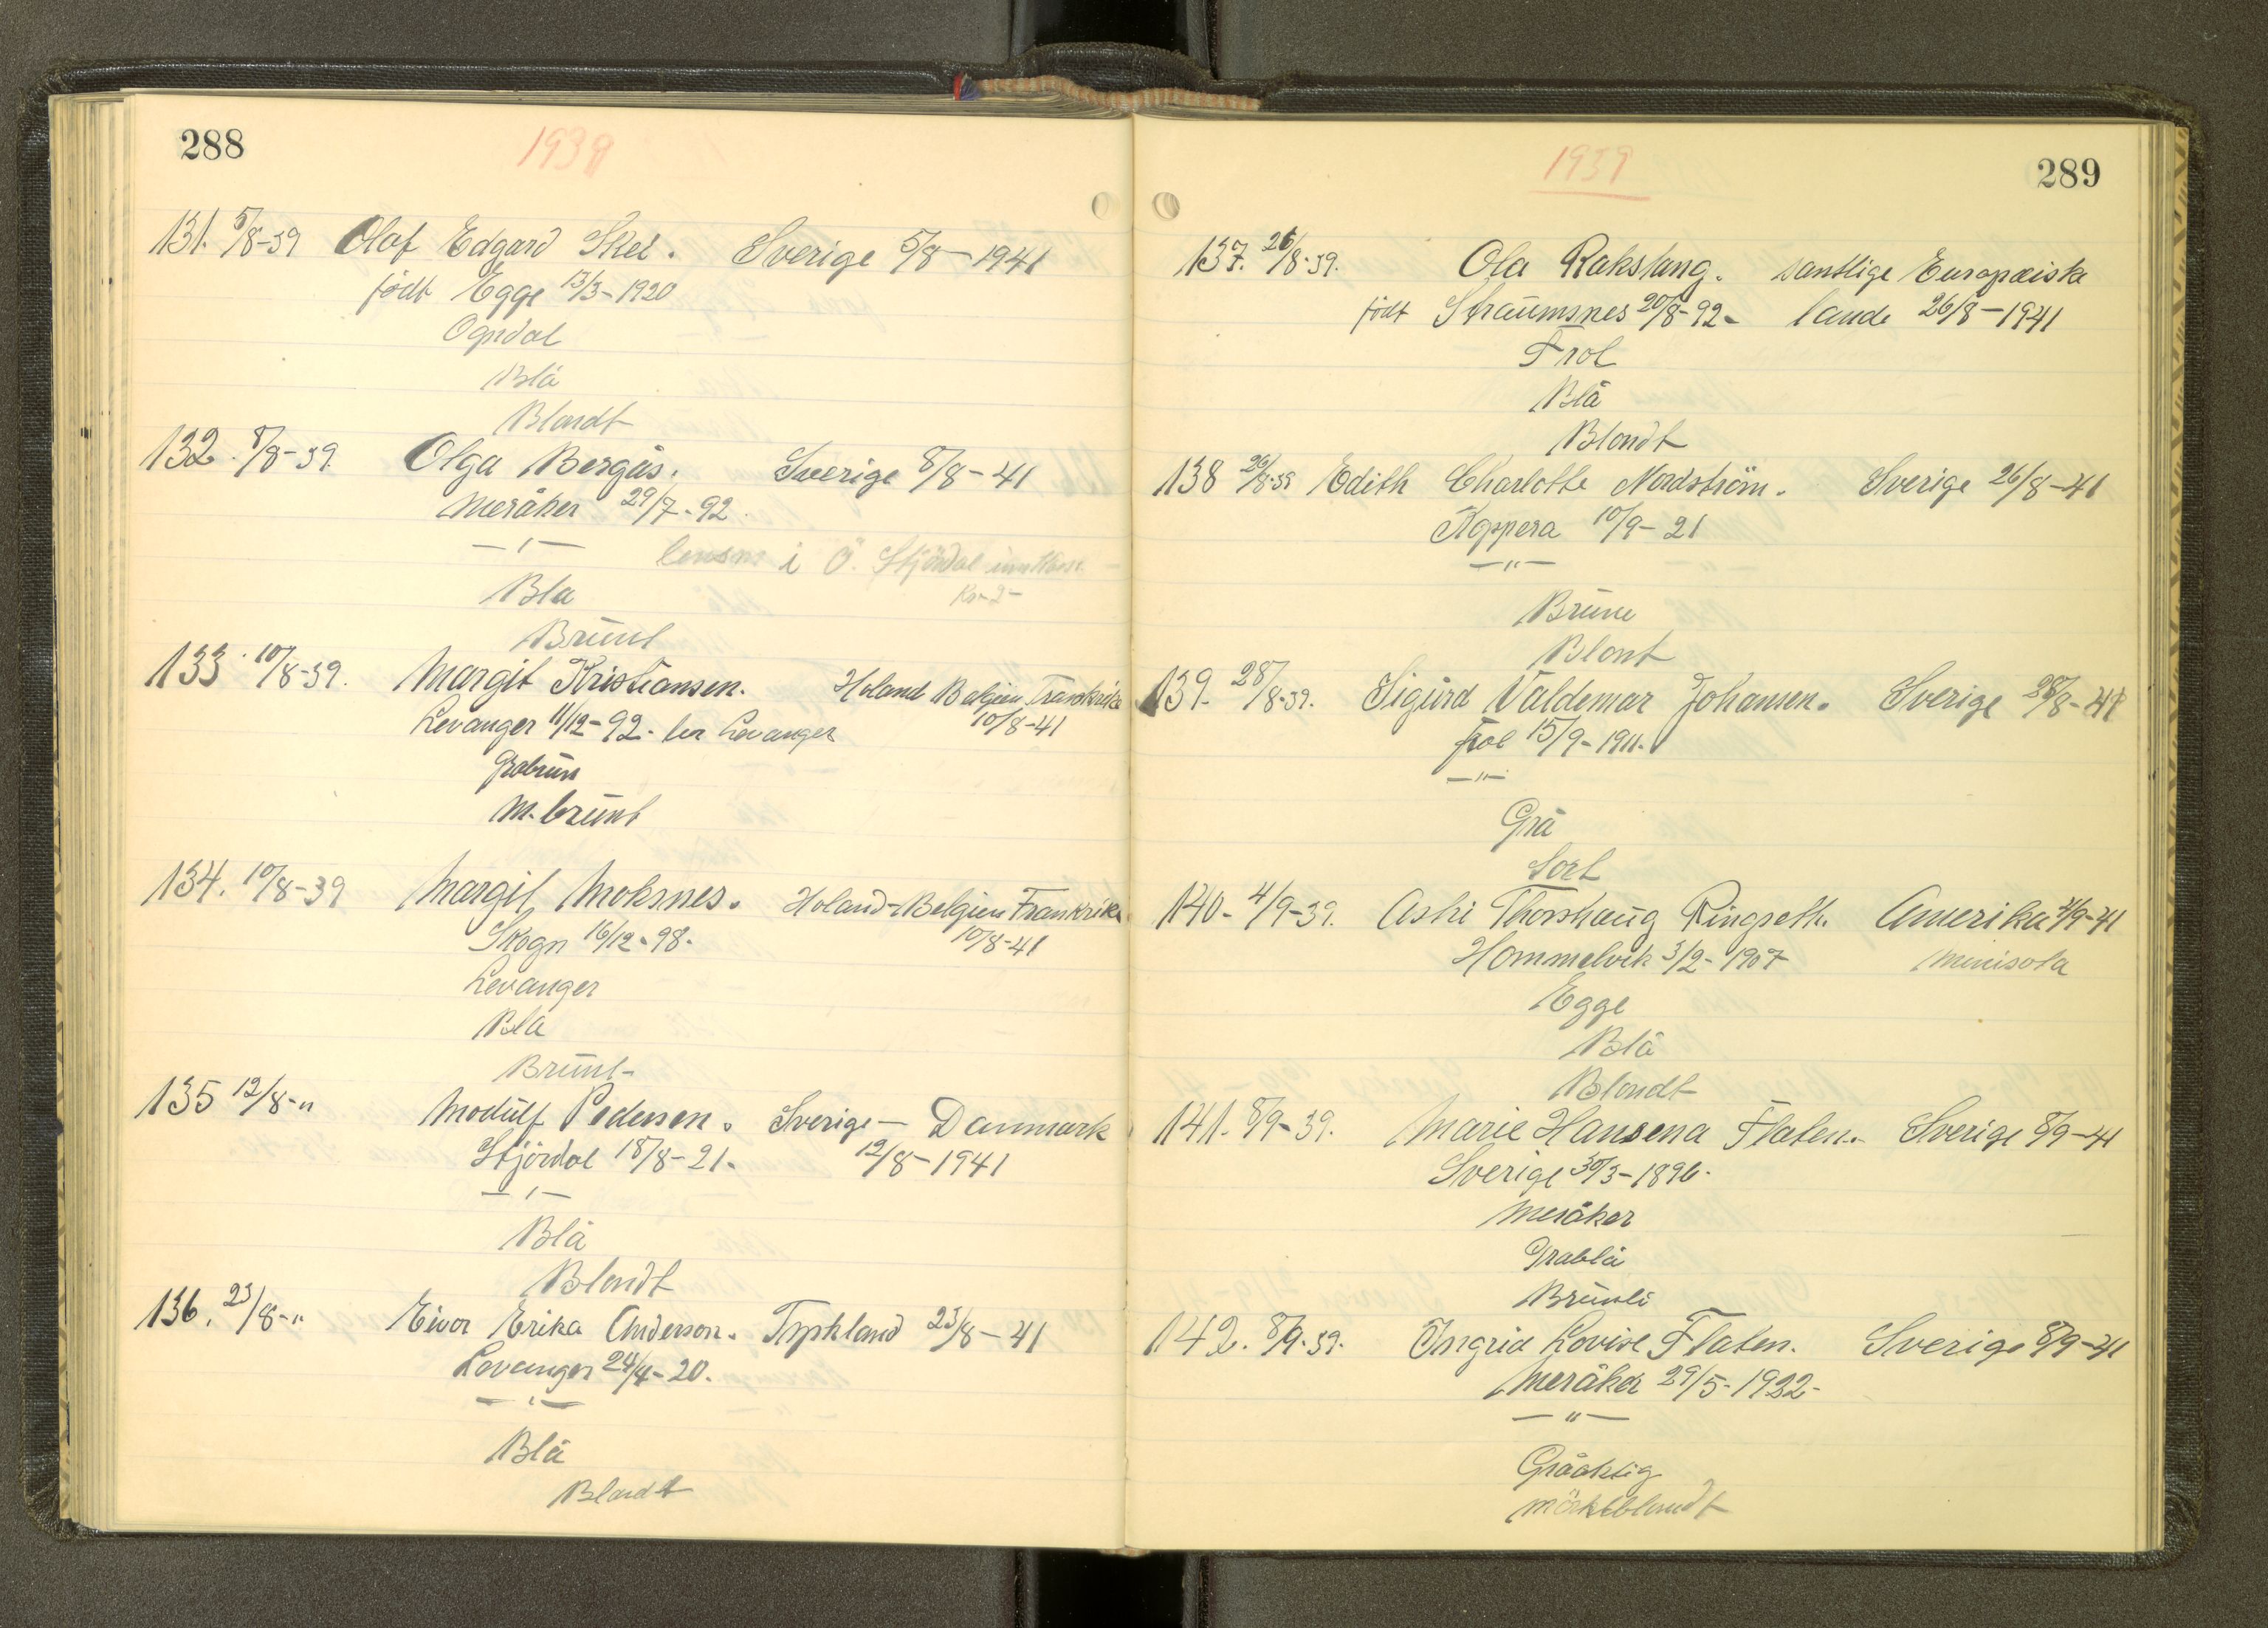 288
1939
131. 5/8-39 Olaf Edgard Skei. Sverige 5/8-1941
født Egge 13/3-1920
Ogndal
Blå
Blondt
132. 8/8-39. Olga Bergås. Sverige 8/8-41
Meråker 29/7-92.
—"—
lensm i Ö. Stjördal
Kr 2-
Bla
Brunt
133. 10/8-39. Margit Kristiansen. Holand Belgien Frankrike
Levanger 11/12-92. Levanger 10/8-41
Gråbrun
M. brunt
134. 10/8-39 Margit Moksnes. Holand-Belgien Frankrike
Skogn 16/12-98. 10/8-41
Levanger
Blå
Brunt-
135 12/8-" Modulf Pedersen. Sverige - Danmark
Stjördal 18/8-21. 12/8-1941
—"—
Blå
Blondt
136. 23/8-" Eivor Erika Anderson. Tyskland 23/8-41
Levanger 24/4-20.
—"—
Blå
Blondt
289
1939
137. 26/8-39. Ola Rakstang. samtlige Europæiske
født Straumsnes 20/8-92- lande 26/8-1941
Frol
Blå
Blondt
138 26/8-39 Edith Charlotte Nordström. Sverige 26/8-41
Kopperå 10/9-21
—"—
Brune
Blont
139. 28/8-39. Sigurd Valdemar Johansen. Sverige 28/8-41
Frol 15/9-1911.
—"—
Grå
Sort
140- 4/9-39. Thorshaug Ringseth. Amerika 4/9-41
Hommelvik 3/2-1907 Minisota
Egge
Blå
Blondt
141. 8/9-39. Marie Hansena Flaten. Sverige 8/9-41
Sverige 30/3-1896.
Meråker
Gråblå
Brunli
142. 8/9-39. Ingrid Lovise Flaten. Sverige 8/9-41
Meråker 29/5-1922-
—"—
Gråaktig
mörktblondt